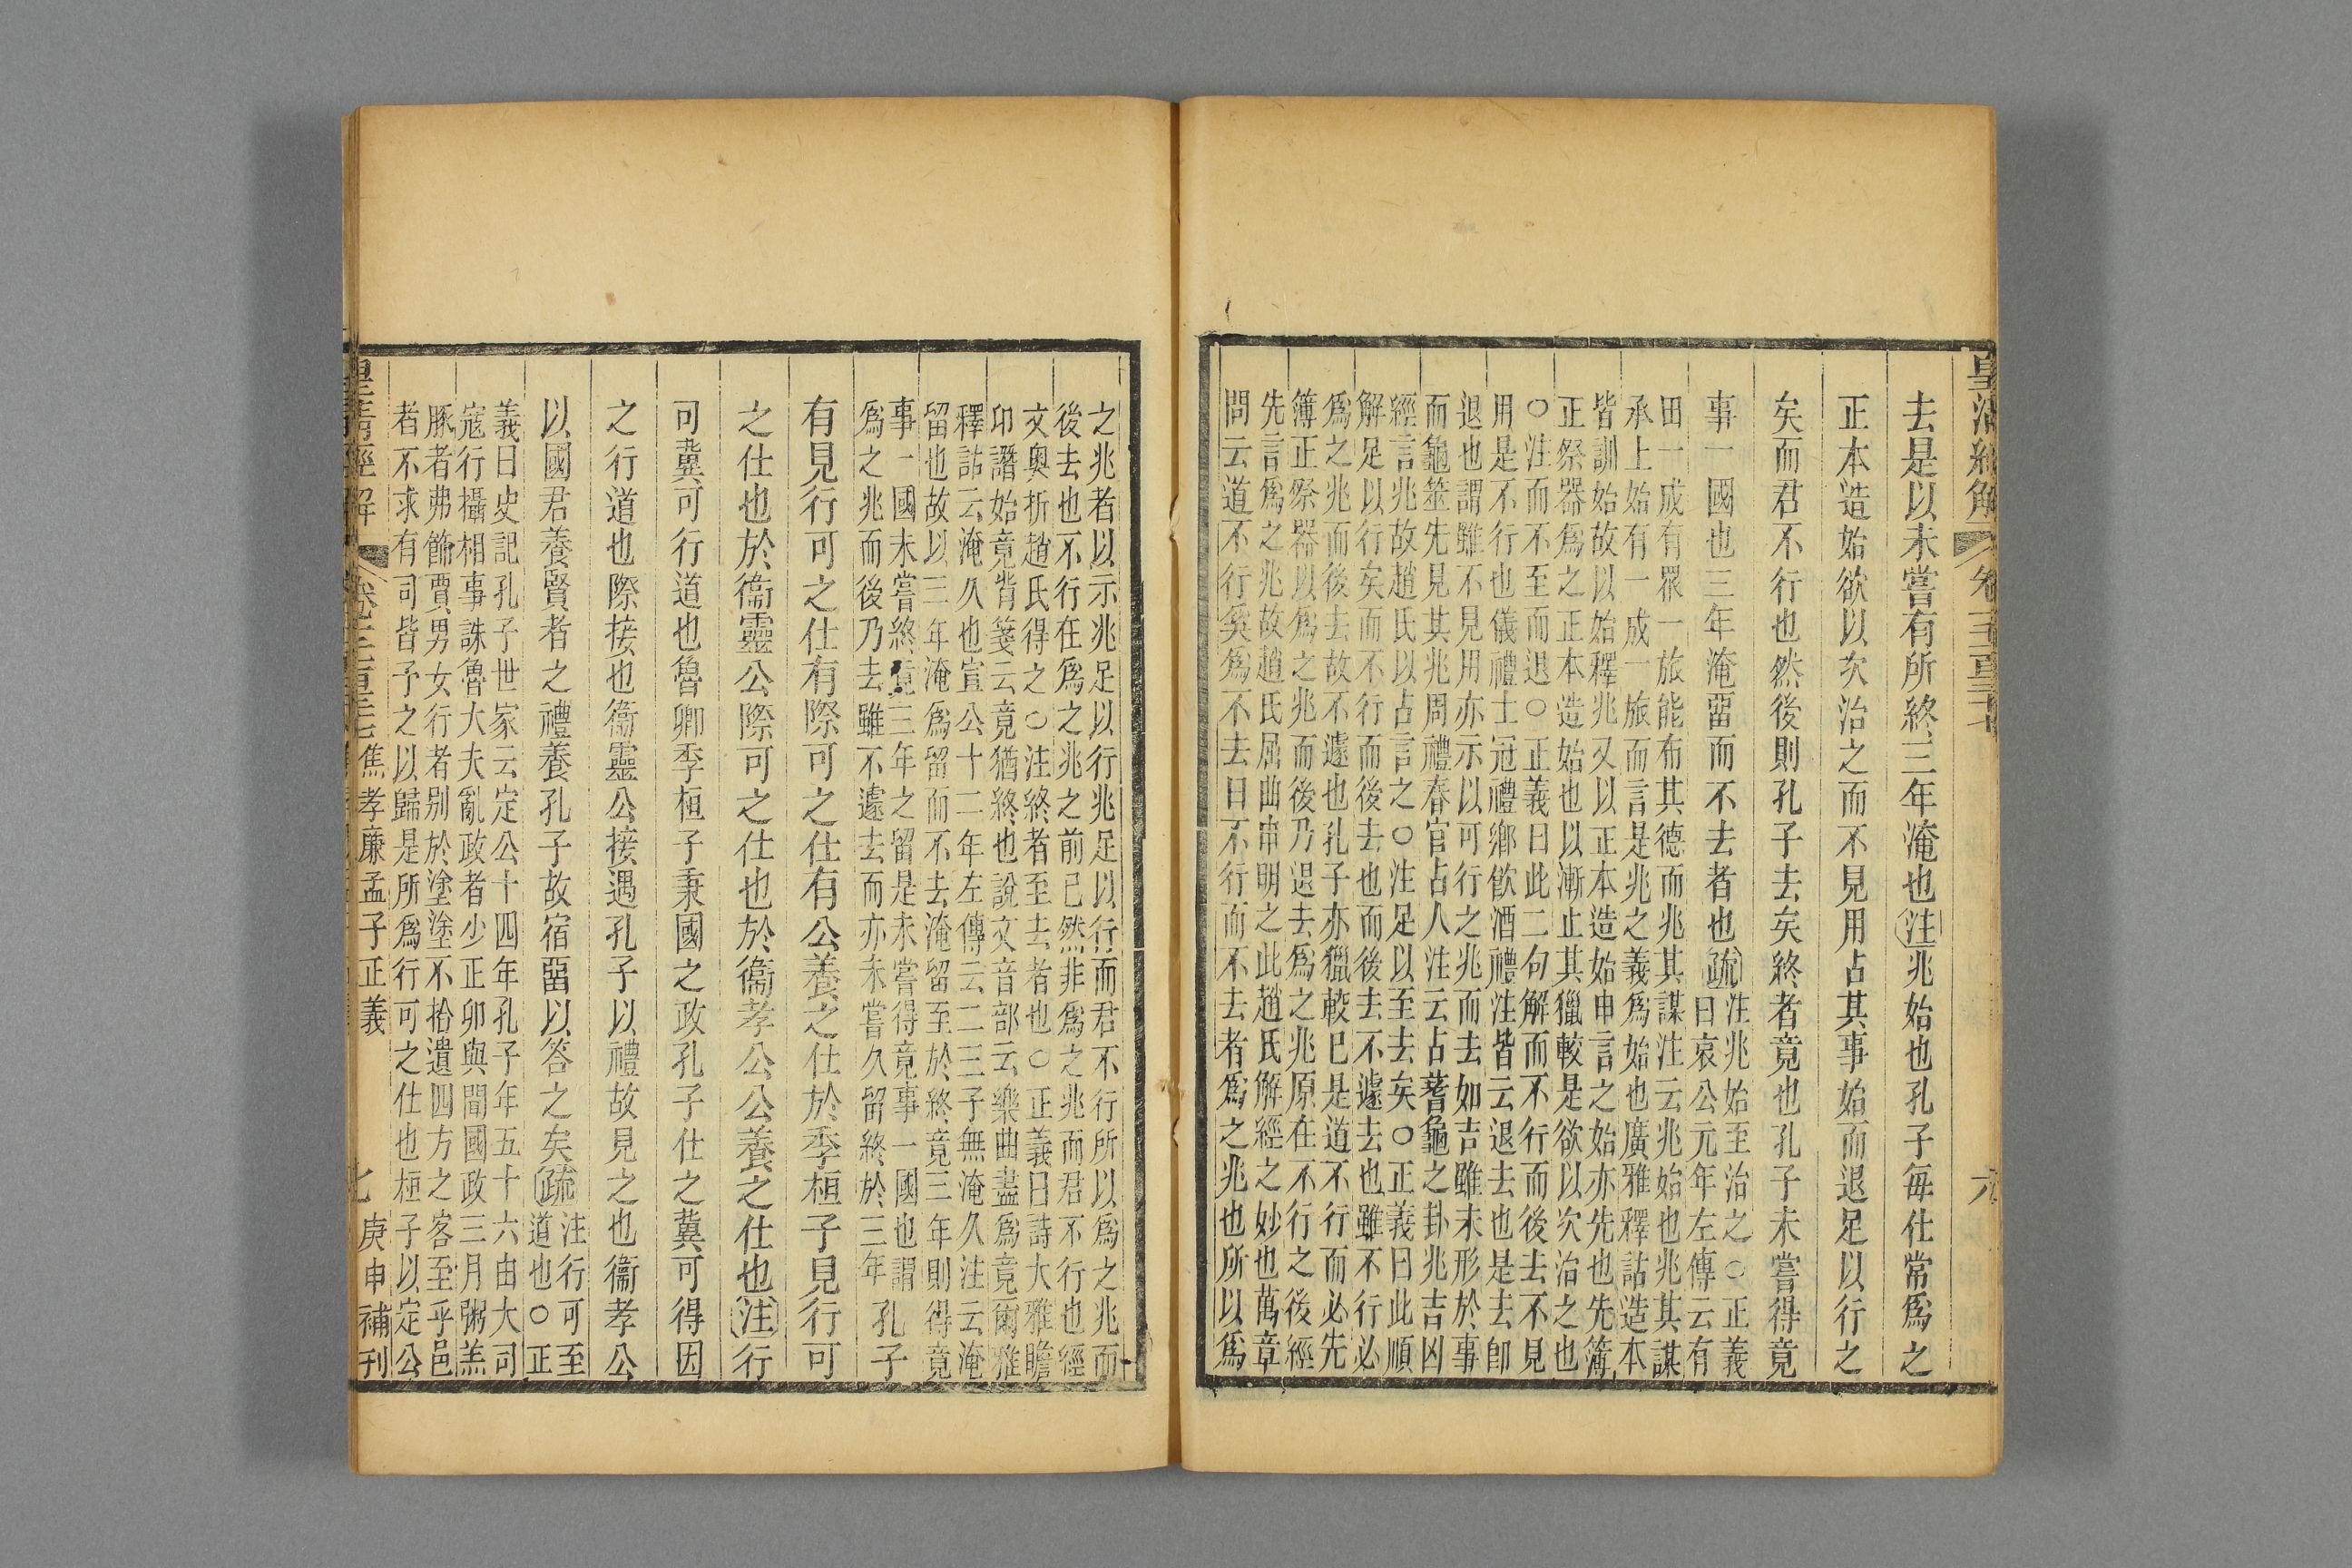 皇清經解 卷千一百三十六 六
去是以未嘗有所終三年淹也注兆始也孔子每仕常爲之
正本造始欲以次治之而不見用占其事始而退足以行之
矣而君不行也然後則孔子去矣終者竟也孔子未嘗得竟
事一國也三年淹畱而不去者也疏注兆始至治之○正義
曰哀公元年左傳云有
田一成有眾一旅能布其德而兆其謀注云兆始也兆其謀
承上始有一成一旅而言是兆之義爲始也廣雅釋詁造本
皆訓始故以始釋兆又以正本造始申言之始亦先也先簿
正祭器爲之正本造始也以漸止其獵較是欲以次治之也
○注而不至而退○正義曰此二句解而不行而後去不見
用是不行也儀禮士冠禮鄉飮酒禮注皆云退去也是去卽
退也謂雖不見用亦示以可行之兆而去如吉雖未形於事
而龜筮先見其兆周禮春官占人注云占蓍龜之卦兆吉凶
經言兆故趙氏以占言之○注足以至去矣○正義曰此順
解足以行矣而不行而後去也而後去不遽去也雖不行必
爲之兆而後去故不遽也孔子亦獵較已是道不行而必先
簿正祭器以爲之兆而後乃退去爲之兆原在不行之後經
先言爲之兆故趙氏屈曲申明之此趙氏解經之妙也萬章
問云道不行奚爲不去曰不行而不去者爲之兆也所以爲
之兆者以示兆足以行兆足以行而君不行所以爲之兆而
後去也不行在爲之兆之前已然非爲之兆而君不行也經
文奧折趙氏得之○注終者至去者也○正義曰詩大雅瞻
卬譖始竟背箋云竟猶終也說文音部云樂曲盡爲竟爾雅
釋詁云淹久也宣公十二年左傳云二三子無淹久注云淹
留也故以三年淹爲留而不去淹留至於終竟三年則得竟
事一國未嘗終竟三年之留是未嘗得竟事一國也謂孔子
爲之兆而後乃去雖不遽去而亦未嘗久留終於三年
有見行可之仕有際可之仕有公養之仕於季桓子見行可
之仕也於衞靈公際可之仕也於衞孝公公養之仕也注行
可冀可行道也魯卿季桓子秉國之政孔子仕之冀可得因
之行道也際接也衞靈公接遇孔子以禮故見之也衞孝公
以國君養賢者之禮養孔子故宿畱以答之矣疏注行可至
道也○正
義曰史記孔子世家云定公十四年孔子年五十六由大司
寇行攝相事誅魯大夫亂政者少正卯與聞國政三月粥羔
豚者弗飾賈男女行者别於塗塗不拾遺四方之客至乎邑
者不求有司皆予之以歸是所爲行可之仕也桓子以定公
皇清經解 焦孝廉孟子正義 七 庚申補刊